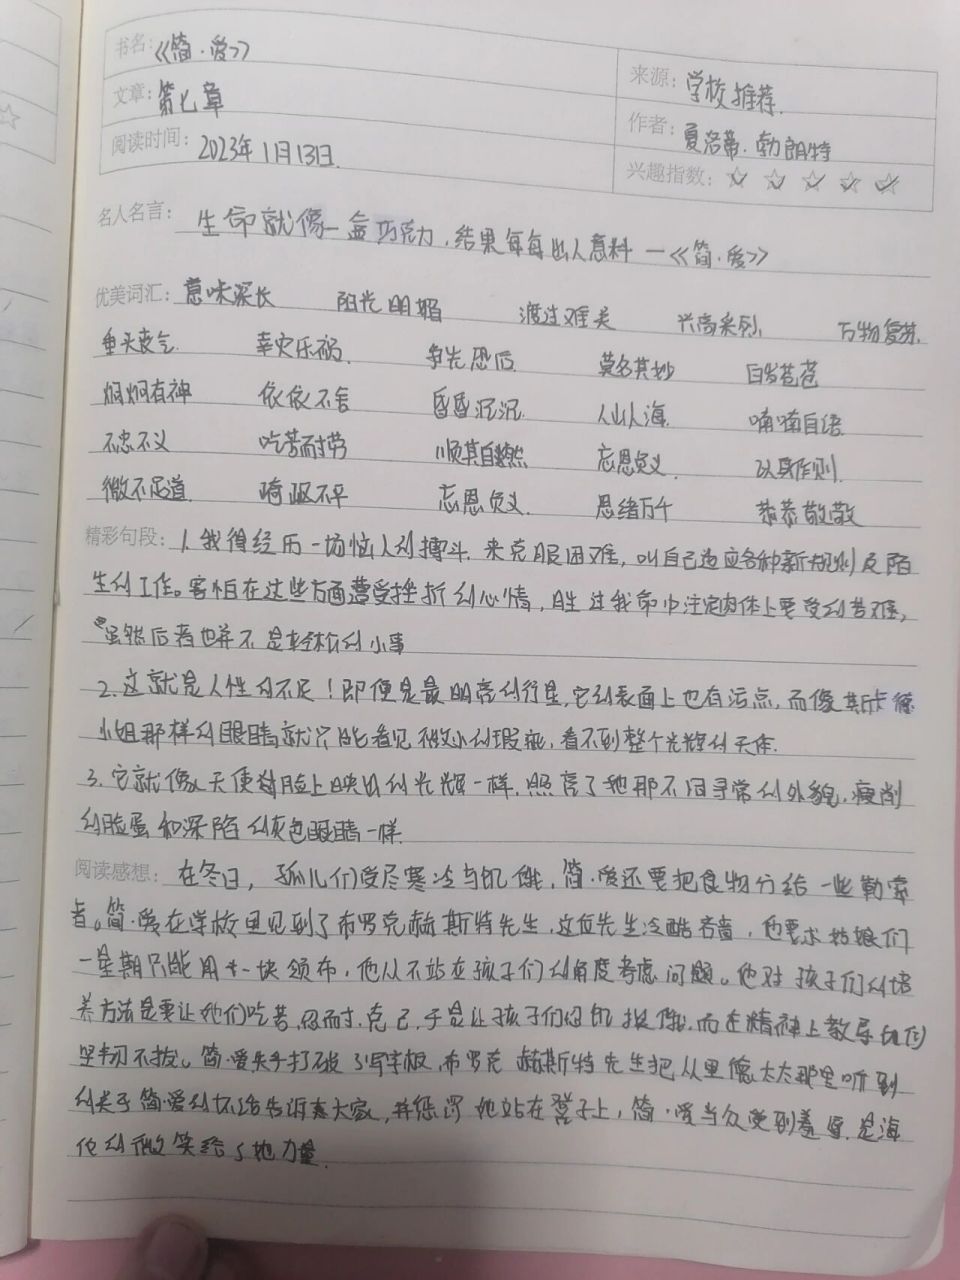 书名：《简·爱》
来源：学校推荐.
文章：第七章
作者：夏洛蒂.勃朗特
阅读时间：2023年1月13日.
兴趣指数：
名人名言：生命就像一盒巧克力,结果每每出人意料 —《简·爱》
优美词汇：意味深长 阳光明媚 渡过难关 兴高采烈 万物复苏.
垂头丧气 幸灾乐祸. 争先恐后 莫名其妙 白发苍苍
炯炯有神 依依不舍 昏昏沉沉. 人山人海. 喃喃自语
不忠不义 吃苦耐劳 顺其自然 忘恩负义. 以身作则.
微不足道 崎岖不平 忘恩负义. 思绪万千 恭恭敬敬
精彩句段：1.我得经历一场恼人的搏斗.来克服困难，叫自己适应各种新规则及陌
生的工作。害怕在这些方面遭受挫折的心情，胜过我命中注定肉体上要受的苦难，
虽然后者也并不是轻松的小事
2.这就是人性的不足！即便是最明亮的行星,它的表面上也有污点,而像斯卡德
小姐那样的眼睛就只能看见微小的瑕疵,看不到整个光辉的天体.
3.它就像天使脸上映出的光辉一样,照亮了她那不同寻常的外貌.瘦削
的脸蛋和深陷的灰色眼睛一样.
阅读感想：在冬日，孤儿们受尽寒冷与饥饿，简·爱还要把食物分给一些勒索
者。简·爱在学校里见到了布罗克赫斯特先生，这位先生冷酷吝啬，他要求姑娘们
一星期只能用一块领布，他从不站在孩子们的角度考虑问题。他对孩子们的培
养方法是要让她们吃苦,忍耐,克己,于是让孩子们忍饥挨饿,而在精神上教导她们
坚韧不拔。简·爱失手打破了写字板,布罗克赫斯特先生把从里德太太那里听到
的关于简·爱的坏话告诉大家,并惩罚她站在凳子上，简·爱当众受到羞辱.是海
伦的微笑给了她力量.